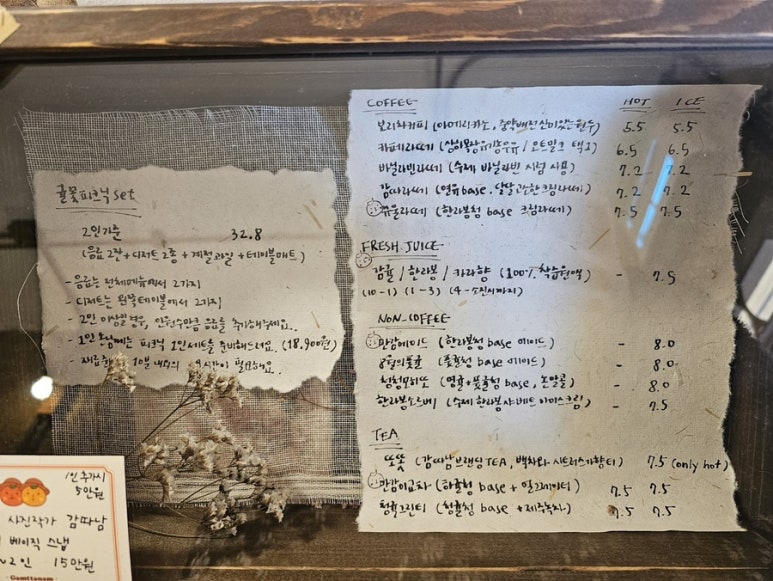 귤꽃피크닉 set
2인기준 32.8
(음료 2잔 + 디저트 2종 + 계절과일 + 테이블매트)
- 음료는 전체메뉴에서 2가지
- 디저트는 원물테이블에서 2가지
- 2인 이상일경우, 인원수만큼 음료를 추가해주세요.
- 1인 손님께는 피크닉 1인세트를 준비해드려요. (18,900원)
10분 내외의 필요해요.
COFFEE HOT ICE
보리차커피 (아메리카노, 5.5 5.5
카페라떼 ( / 오트밀크 택1) 6.5 6.5
바닐라빈라떼 (수제 바닐라빈 시럽 사용) 7.2 7.2
감따라떼 (연유 base, 달달 크림라떼) 7.2 7.2
귤라떼 (한라봉청 base 크림라떼) 7.5 7.5
FRESH JUICE
감귤 / 한라봉 / 카라향 (100% 착즙원액) - 7.5
(10-1) (1-3) (4-소진시까지)
NON-COFFEE
만감에이드 (한라봉청 base 에이드) - 8.0
풋귤 (풋귤청 base 에이드) - 8.0
base, 논알콜) - 8.0
한라봉소르베 (수제 한라봉샤베트 아이스크림) - 7.5
TEA
또똣 (감따남브랜딩TEA, 백차와 시트러스가향티) 7.5 (only hot)
만감이굴차 base + 얼그레이티) 7.5 7.5
청귤그린티 (청귤청 base + 제주녹차) 7.5 7.5
1인 추가시
5만원
사진작가 감따남
베이직 스냅
~2인 15만원
Gamttanam